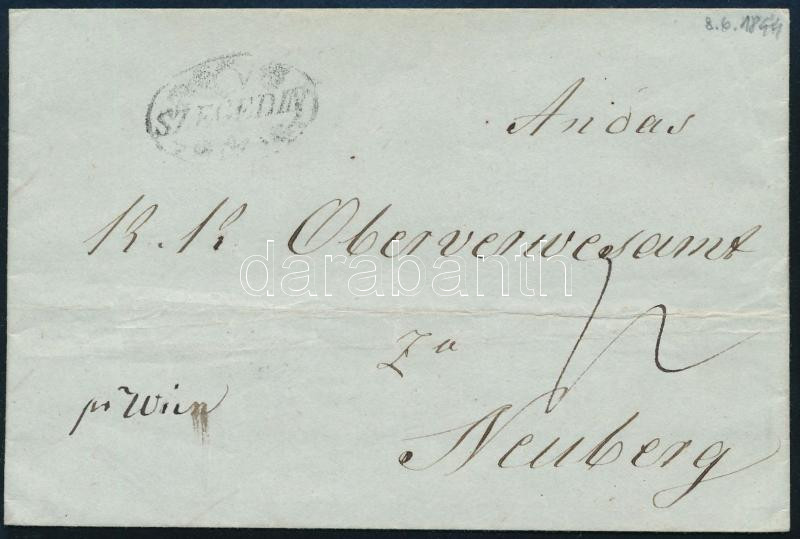 8.6.1844
SZEGEDIN
An das
K. K. Oberverwesamt
Zu
Neuberg
pr Wien
darabanth